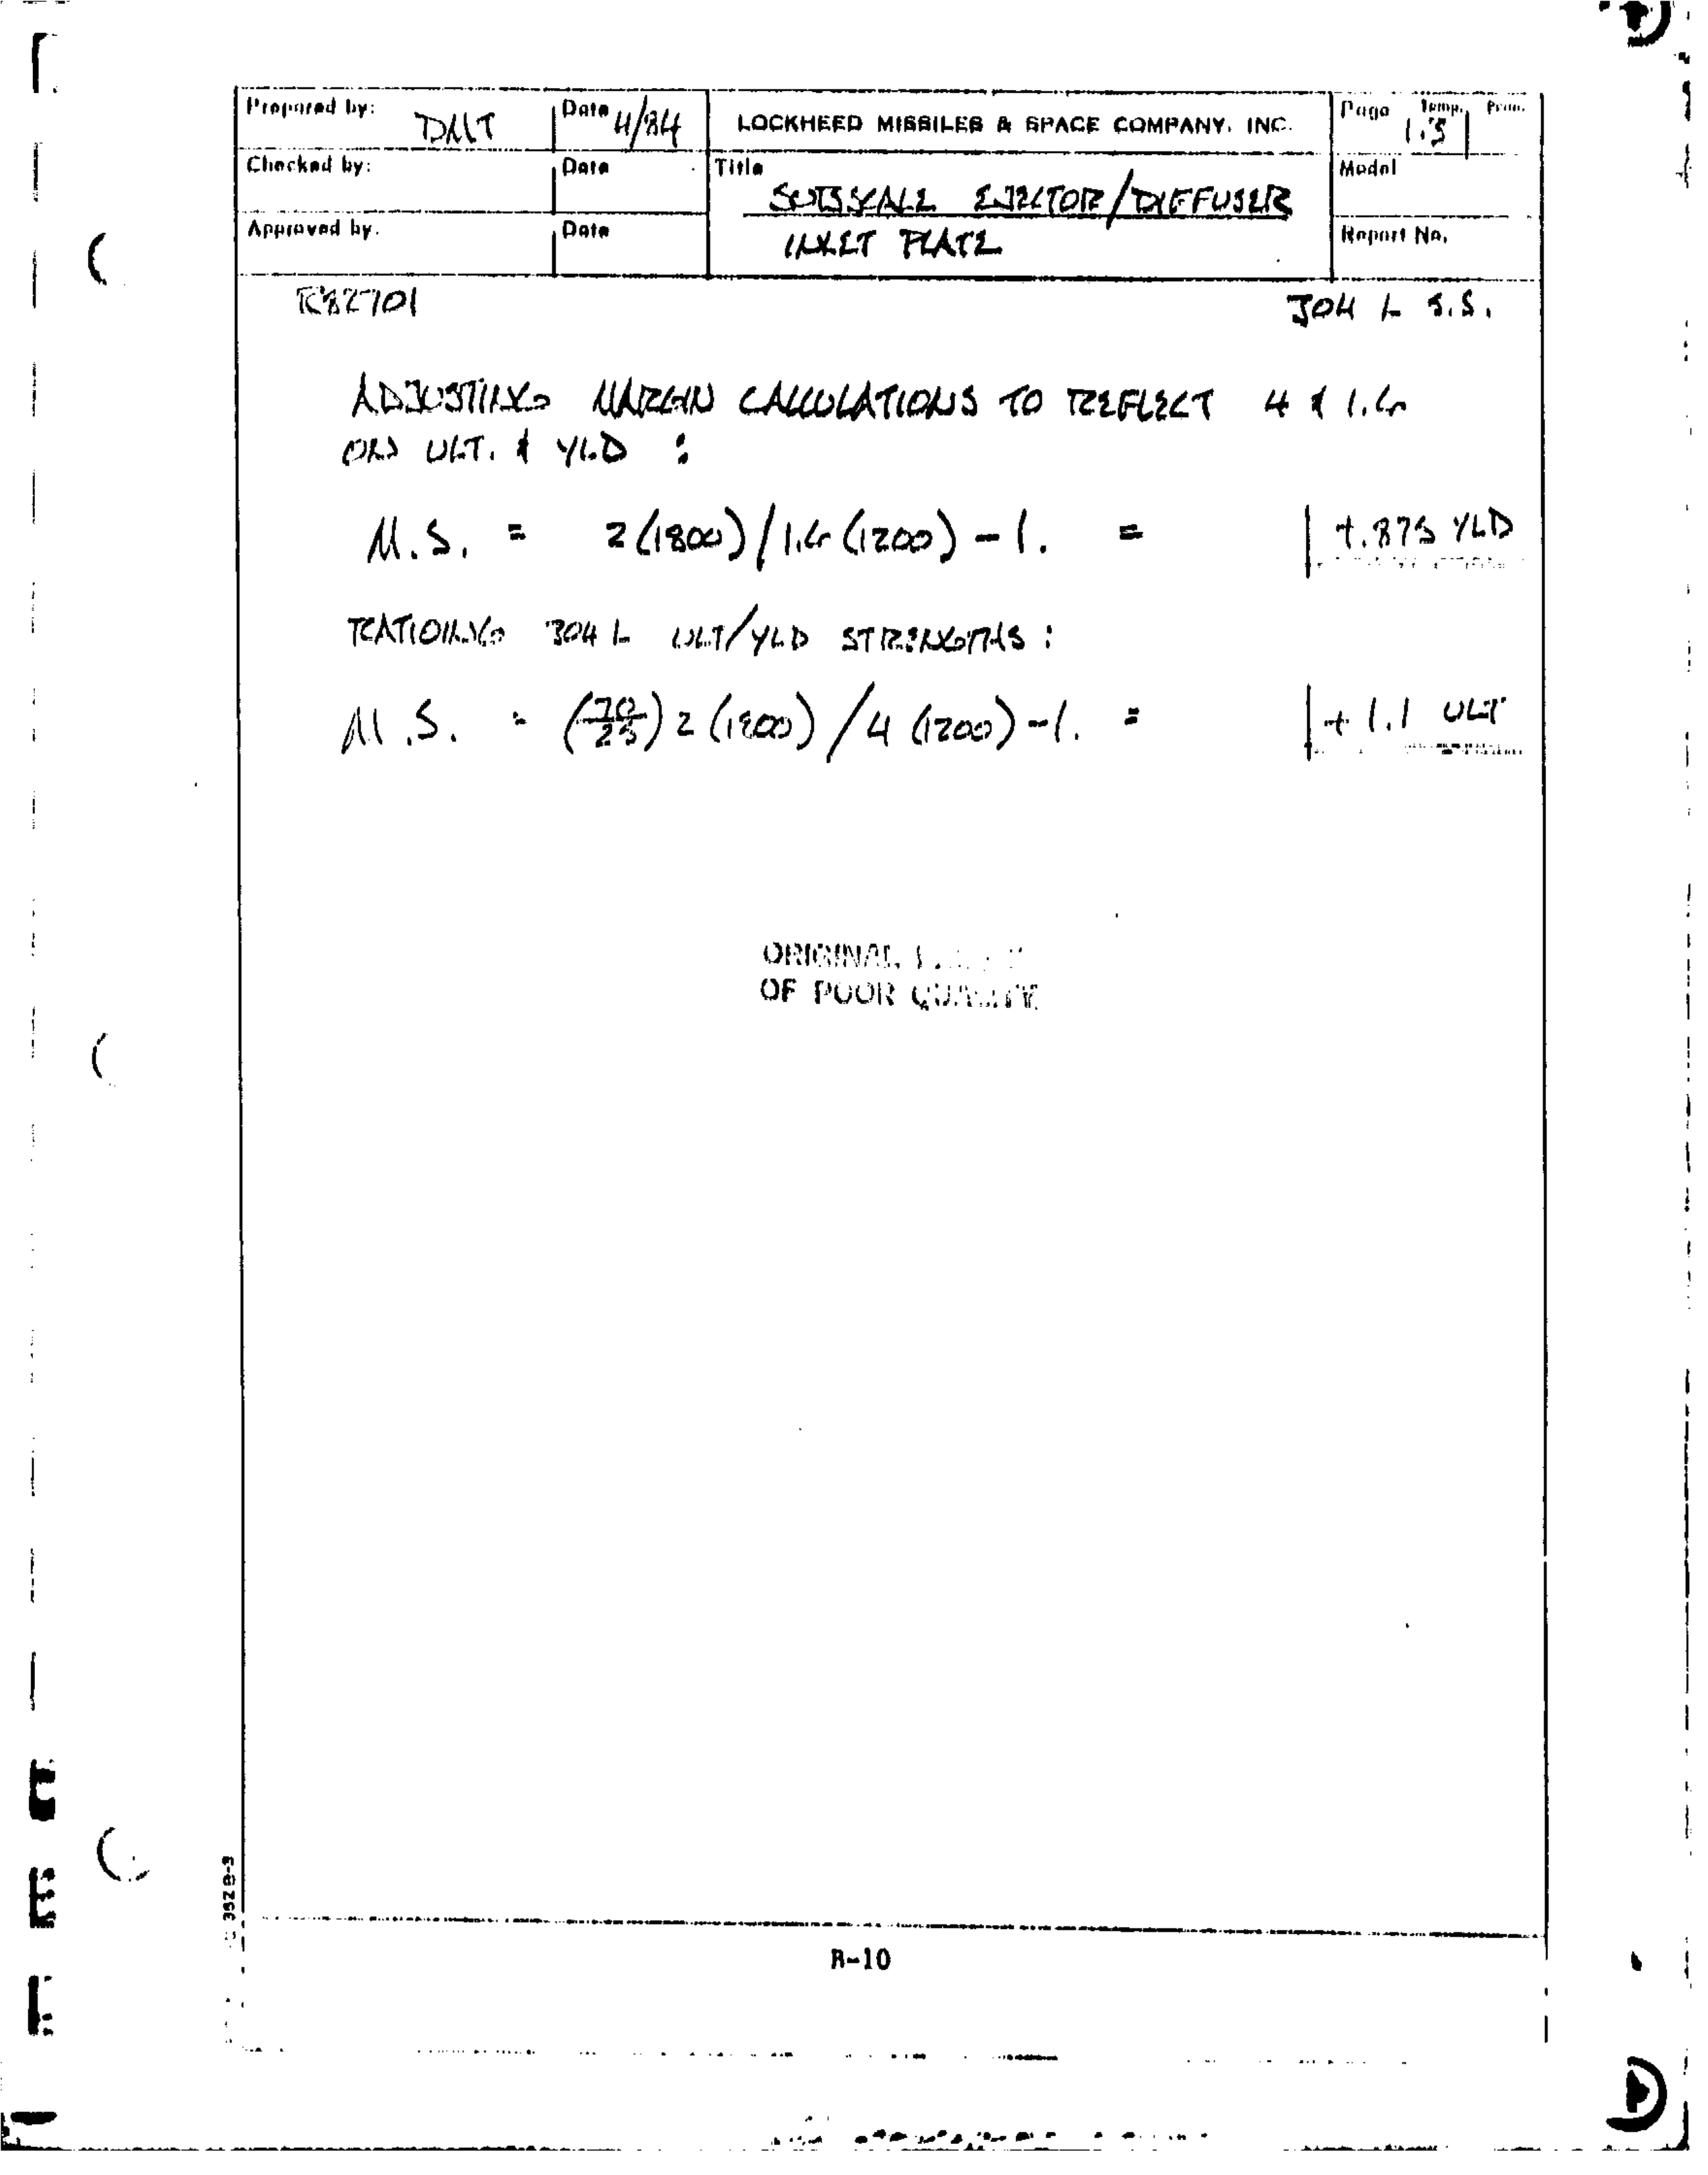 Prepared by: DMT Date 4/84 LOCKHEED MISSILES & SPACE COMPANY, INC. Page Temp. Perm.
1.3
Checked by: Date Title Model
SUBSCALE EJECTOR/DIFFUSER
Approved by. Date INLET PLATE Report No.
R82701 304 L S.S.
ADJUSTING MARGIN CALCULATIONS TO REFLECT 4 & 1.6
ON ULT. & YLD :
M.S. = 2(1800)/1.6(1200) - 1. = +.875 YLD
RATIOING 304 L ULT/YLD STRENGTHS :
M.S. = (70/25) 2 (1800) / 4 (1200) - 1. = + 1.1 ULT
ORIGINAL
OF POOR QUALITY
3528-3
B-10